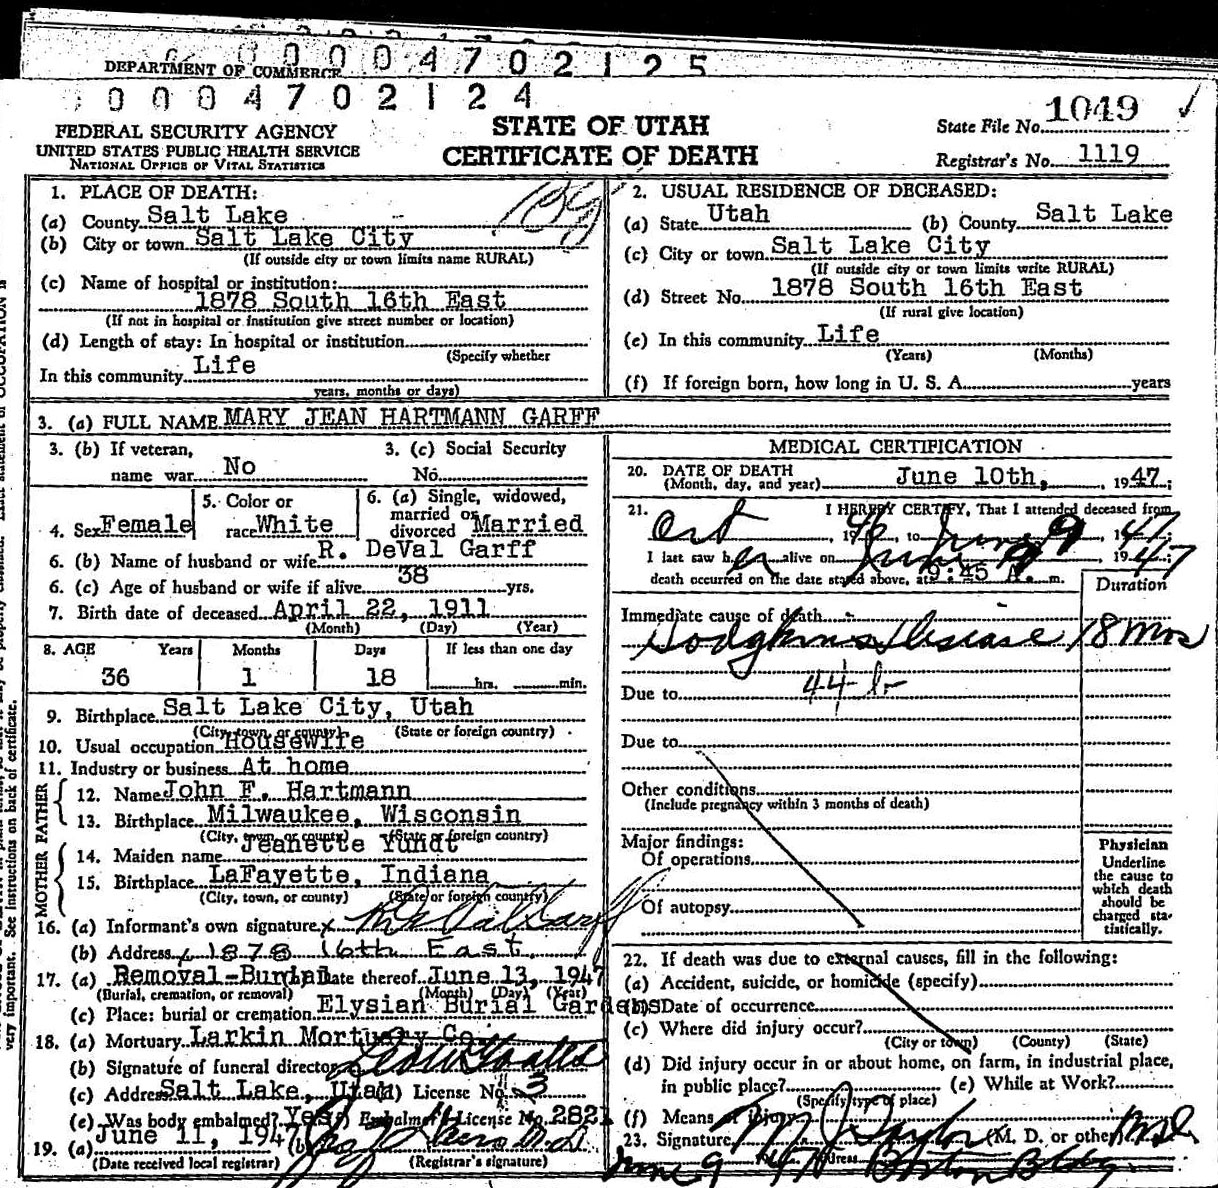 0 0 0 4 7 0 2 1 2 5
DEPARTMENT OF COMMERCE
0 0 0 4 7 0 2 1 2 4
FEDERAL SECURITY AGENCY
UNITED STATES PUBLIC HEALTH SERVICE
NATIONAL OFFICE OF VITAL STATISTICS
STATE OF UTAH
CERTIFICATE OF DEATH
State File No. 1049 ✓
Registrar's No. 1119
1. PLACE OF DEATH:
(a) County Salt Lake
(b) City or town Salt Lake City
(If outside city or town limits name RURAL)
(c) Name of hospital or institution:
1878 South 16th East
(If not in hospital or institution give street number or location)
(d) Length of stay: In hospital or institution
(Specify whether
In this community Life
years, months or days)
2. USUAL RESIDENCE OF DECEASED:
(a) State Utah (b) County Salt Lake
(c) City or town Salt Lake City
(If outside city or town limits write RURAL)
(d) Street No. 1878 South 16th East
(If rural give location)
(e) In this community Life
(Years) (Months)
(f) If foreign born, how long in U. S. A. years
3. (a) FULL NAME MARY JEAN HARTMANN GARFF
3. (b) If veteran,
name war No
3. (c) Social Security
No.
4. Sex Female
5. Color or
race White
6. (a) Single, widowed,
married or
divorced Married
6. (b) Name of husband or wife R. DeVal Garff
6. (c) Age of husband or wife if alive 38 yrs.
7. Birth date of deceased April 22, 1911
(Month) (Day) (Year)
8. AGE Years Months Days If less than one day
36 1 18 hrs. min.
9. Birthplace Salt Lake City, Utah
(City, town, or county) (State or foreign country)
10. Usual occupation Housewife
11. Industry or business At home
FATHER
12. Name John F. Hartmann
13. Birthplace Milwaukee, Wisconsin
(City, town, or county) (State or foreign country)
MOTHER
14. Maiden name Jeanette Yundt
15. Birthplace LaFayette, Indiana
(City, town, or county) (State or foreign country)
16. (a) Informant's own signature x R DeVal Garff
(b) Address 1878 16th East
17. (a) Removal-Burial Date thereof June 13, 1947
(Burial, cremation, or removal) (Month) (Day) (Year)
(c) Place: burial or cremation Elysian Burial Gardens
18. (a) Mortuary Larkin Mortuary Co.
(b) Signature of funeral director
(c) Address Salt Lake, Utah (d) License No. 3
(e) Was body embalmed? Yes (f) Embalmer's License No. 2821
19. (a) June 11, 1947 (b)
(Date received local registrar) (Registrar's signature)
MEDICAL CERTIFICATION
20. DATE OF DEATH
(Month, day, and year) June 10th, , 1947;
21. I HEREBY CERTIFY, That I attended deceased from
Oct , 1946, to June 9, 1947.
I last saw her alive on June 9, 1947
death occurred on the date stated above, at 9:45 A. m.
Duration
Immediate cause of death
Hodgkins Disease 18 Mos
Due to 44 b
Due to
Other conditions
(Include pregnancy within 3 months of death)
Major findings:
Of operations
Of autopsy
Physician
Underline
the cause to
which death
should be
charged sta-
tistically.
22. If death was due to external causes, fill in the following:
(a) Accident, suicide, or homicide (specify)
(b) Date of occurrence
(c) Where did injury occur?
(City or town) (County) (State)
(d) Did injury occur in or about home, on farm, in industrial place,
in public place? (e) While at Work?
(Specify type of place)
(f) Means of injury
23. Signature Taylor (M. D. or other) M.D.
June 9 47 Address Boston Bldg.
very important. See instructions on back of certificate.